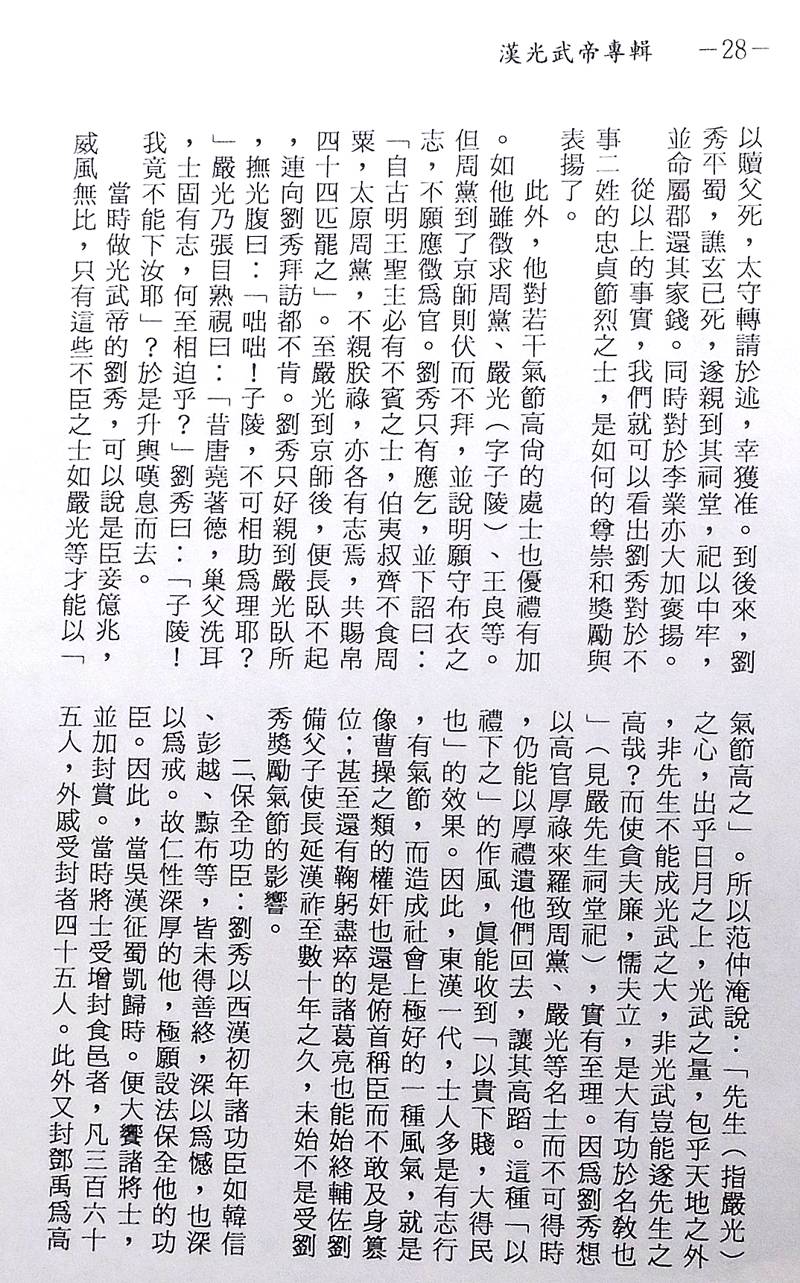 漢光武帝專輯　—28—
以贖父死，太守轉請於述，幸獲准。到後來，劉
秀平蜀，譙玄已死，遂親到其祠堂，祀以中牢，
並命屬郡還其家錢。同時對於李業亦大加褒揚。
從以上的事實，我們就可以看出劉秀對於不
事二姓的忠貞節烈之士，是如何的尊崇和獎勵與
表揚了。
此外，他對若干氣節高尙的處士也優禮有加
。如他雖徵求周黨、嚴光（字子陵）、王良等。
但周黨到了京師則伏而不拜，並說明願守布衣之
志，不願應徵爲官。劉秀只有應乞，並下詔曰：
「自古明王聖主必有不賓之士，伯夷叔齊不食周
粟，太原周黨，不親朕祿，亦各有志焉，共賜帛
四十四匹罷之」。至嚴光到京師後，便長臥不起
，連向劉秀拜訪都不肯。劉秀只好親到嚴光臥所
，撫光腹曰：「咄咄！子陵，不可相助爲理耶？
」嚴光乃張目熟視曰：「昔唐堯著德，巢父洗耳
，士固有志，何至相迫乎？」劉秀曰：「子陵！
我竟不能下汝耶」？於是升輿嘆息而去。
當時做光武帝的劉秀，可以說是臣妾億兆，
威風無比，只有這些不臣之士如嚴光等才能以「
氣節高之」。所以范仲淹說：「先生（指嚴光）
之心，出乎日月之上，光武之量，包乎天地之外
，非先生不能成光武之大，非光武豈能遂先生之
高哉？而使貪夫廉，懦夫立，是大有功於名敎也
」（見嚴先生祠堂祀），實有至理。因爲劉秀想
以高官厚祿來羅致周黨、嚴光等名士而不可得時
，仍能以厚禮遺他們回去，讓其高蹈。這種「以
禮下之」的作風，眞能收到「以貴下賤，大得民
也」的效果。因此，東漢一代，士人多是有志行
，有氣節，而造成社會上極好的一種風氣，就是
像曹操之類的權奸也還是俯首稱臣而不敢及身篡
位；甚至還有鞠躬盡瘁的諸葛亮也能始終輔佐劉
備父子使長延漢祚至數十年之久，未始不是受劉
秀獎勵氣節的影響。
二、保全功臣：劉秀以西漢初年諸功臣如韓信
、彭越、黥布等，皆未得善終，深以爲憾，也深
以爲戒。故仁性深厚的他，極願設法保全他的功
臣。因此，當吳漢征蜀凱歸時。便大饗諸將士，
並加封賞。當時將士受增封食邑者，凡三百六十
五人，外戚受封者四十五人。此外又封鄧禹爲高